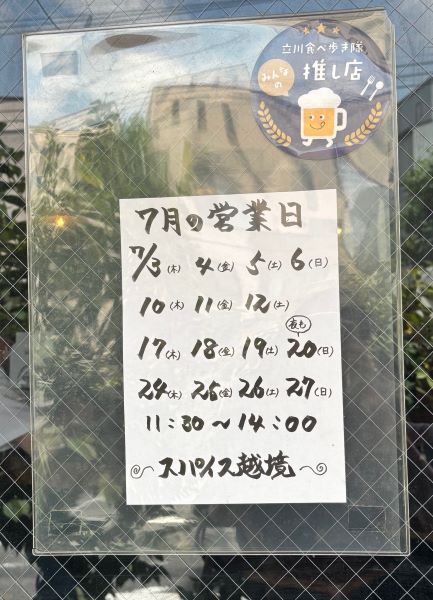 立川食べ歩き隊
みんなの
推し店
7月の営業日
7/3(木) 4(金) 5(土) 6(日)
10(木) 11(金) 12(土)
夜も
17(木) 18(金) 19(土) 20(日)
24(木) 25(金) 26(土) 27(日)
11:30~14:00
スパイス越境